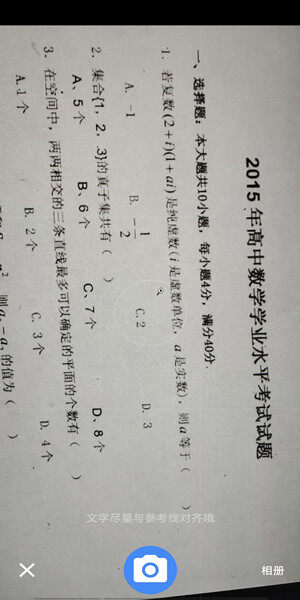 2015年高中数学学业水平考试试题
一、选择题：本大题共10小题，每小题4分，满分40分.
1. 若复数(2+i)(1+ai)是纯虚数(i是虚数单位，a是实数)，则a等于（ ）
A. -1 B. -1/2 C. 2 D. 3
2. 集合{1, 2, 3}的真子集共有（ ）
A、5个 B、6个 C、7个 D、8个
3. 在空间中，两两相交的三条直线最多可以确定的平面的个数有（ ）
A.1个 B. 2个 C. 3个 D. 4个
的值为（ ）
文字尽量与参考线对齐哦
相册